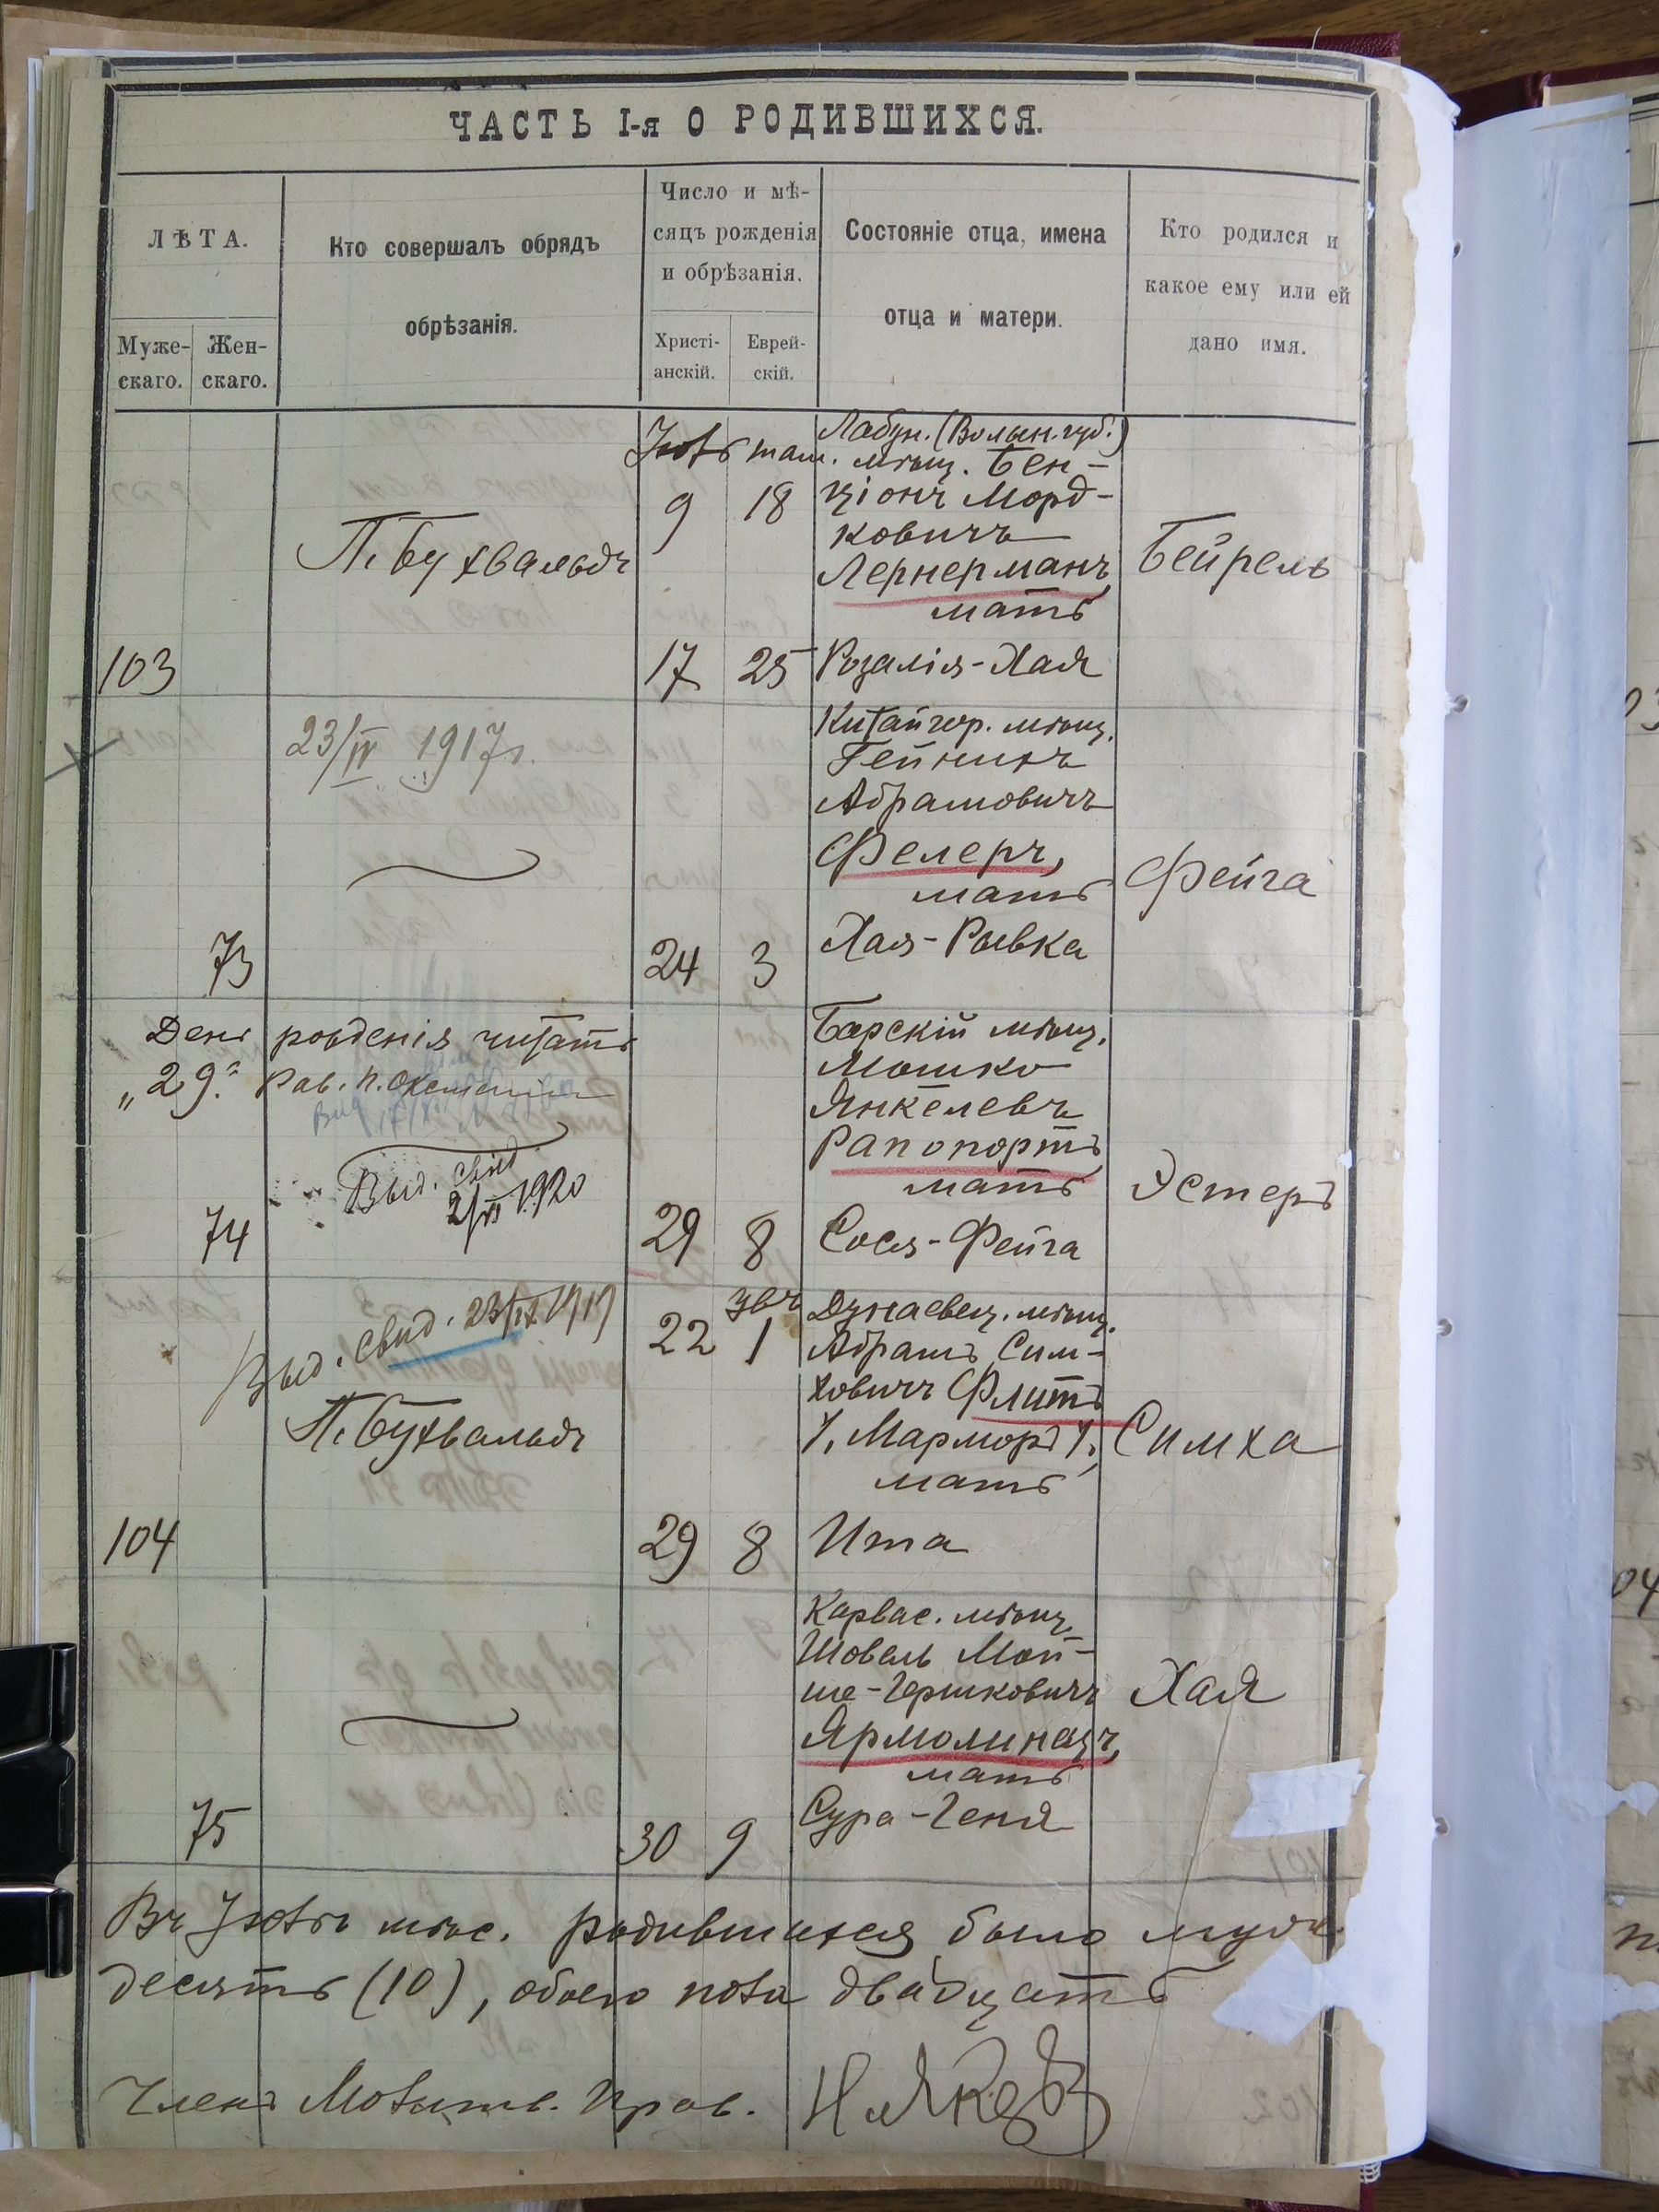 ЧАСТЬ I-я О РОДИВШИХСЯ.
ЛѢТА.
Муже-
скаго.
Жен-
скаго.
Кто совершалъ обрядъ
обрѣзанія.
Число и мѣ-
сяцъ рожденія
и обрѣзанія.
Христі-
анскій.
Еврей-
скій.
Состояніе отца, имена
отца и матери.
Кто родился и
какое ему или ей
дано имя.
Лабун. (Волын. губ.)
Іюль там. мѣщ. Бен-
9 18 ціонъ Морд-
ковичъ
П. Бухвальдъ Лернерманъ Бейрель
мать
103 17 25 Розалія-Хая
Китайгор. мѣщ.
23/IV 1917 г. Гейнихъ
Абрамовичъ
Фелеръ, Фейга
мать
73 24 3 Хая-Рывка
День рожденія читать Барскій мѣщ.
„29" Рав. П. Мошко
Янкелевъ
Рапопортъ
Выд. свид. мать Эстеръ
2/VI 1920
74 29 8 Сося-Фейга
Выд. свид. 23/IX 1919
22 1 Дунаевец. мѣщ.
Абрамъ Сим-
ховичъ Флитъ
П. Бухвальдъ /, Марморъ /, Симха
мать
104 29 8 Ита
Карвас. мѣщ.
Шовель Мой-
ше-Гершковичъ Хая
Ярмолинецъ,
мать
75 30 9 Сура-Геня
Въ Іюлѣ мѣс. родившихся было муж.
десять (10), обоего пола двадцать
Членъ Молитв. Прав.